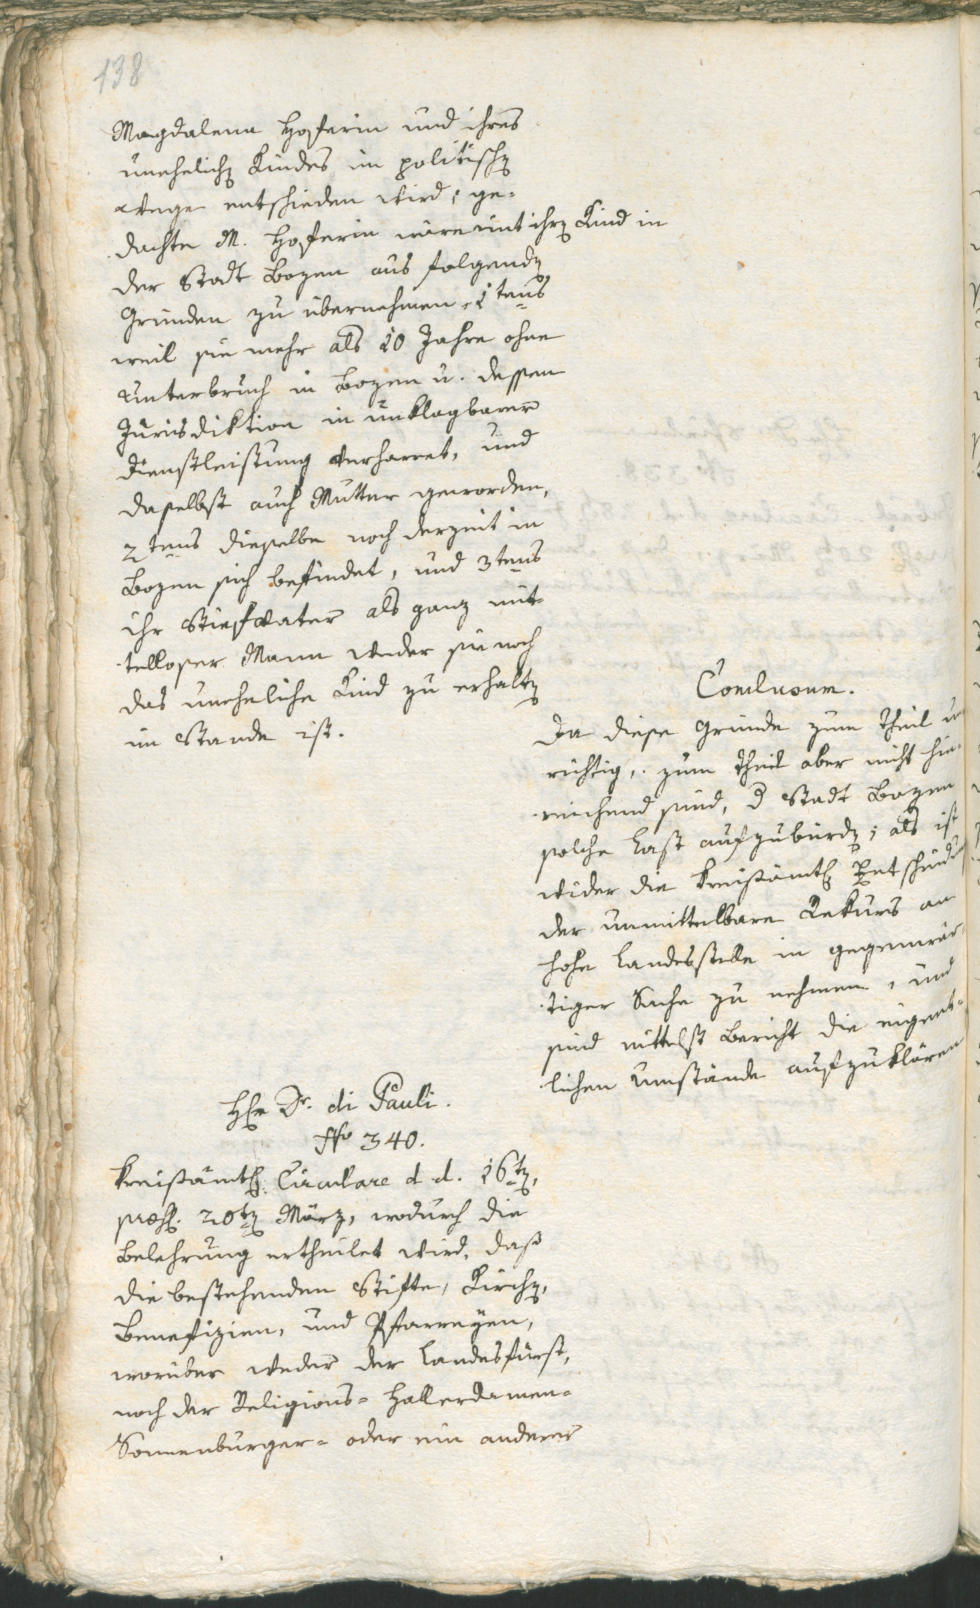 138
Magdalena Hoferin und ihres
unehelichen Kindes im politischen
Wege entschieden wird; ge-
dachte M. Hoferin wäre mit ihrem Kind in
der Stadt Bozen aus folgenden
Gründen zu übernehmen. 1tens
weil sie mehr als 10 Jahre ohne
Unterbruch in Bozen u. dessen
Jurisdiktion in unklagbarer
Dienstleistung verharret, und
daselbst auch Mutter geworden,
2tens dieselbe noch derzeit in
Bozen sich befindet, und 3tens
ihr Stiefvater als ganz mit-
telloser Mann weder sie noch
das uneheliche Kind zu erhalten
im Stande ist.
Conclusum.
Da diese Gründe zum Theil un
richtig, zum Theil aber nicht hin-
reichend sind, der Stadt Bozen
solche Last aufzubürden; als ist
wider die kreisämtl Entscheidu
der unmittelbare Rekurs an
hohe Landesstelle in gegenwär-
tiger Sache zu nehmen, und
sind mittelst Bericht die eigent-
lichen Umstände aufzuklären
Herr Dr. di Pauli.
No 340.
Kreisämtl. Circulare d. d. 16ten,
præs. 20ten März, wodurch die
Belehrung ertheilet wird, daß
die bestehenden Stifte, Kirchen,
Benefizien, und Pfarreyen,
worüber weder der Landesfürst,
noch der Religions- Hallerdamen-
Sonnenburger- oder ein anderer